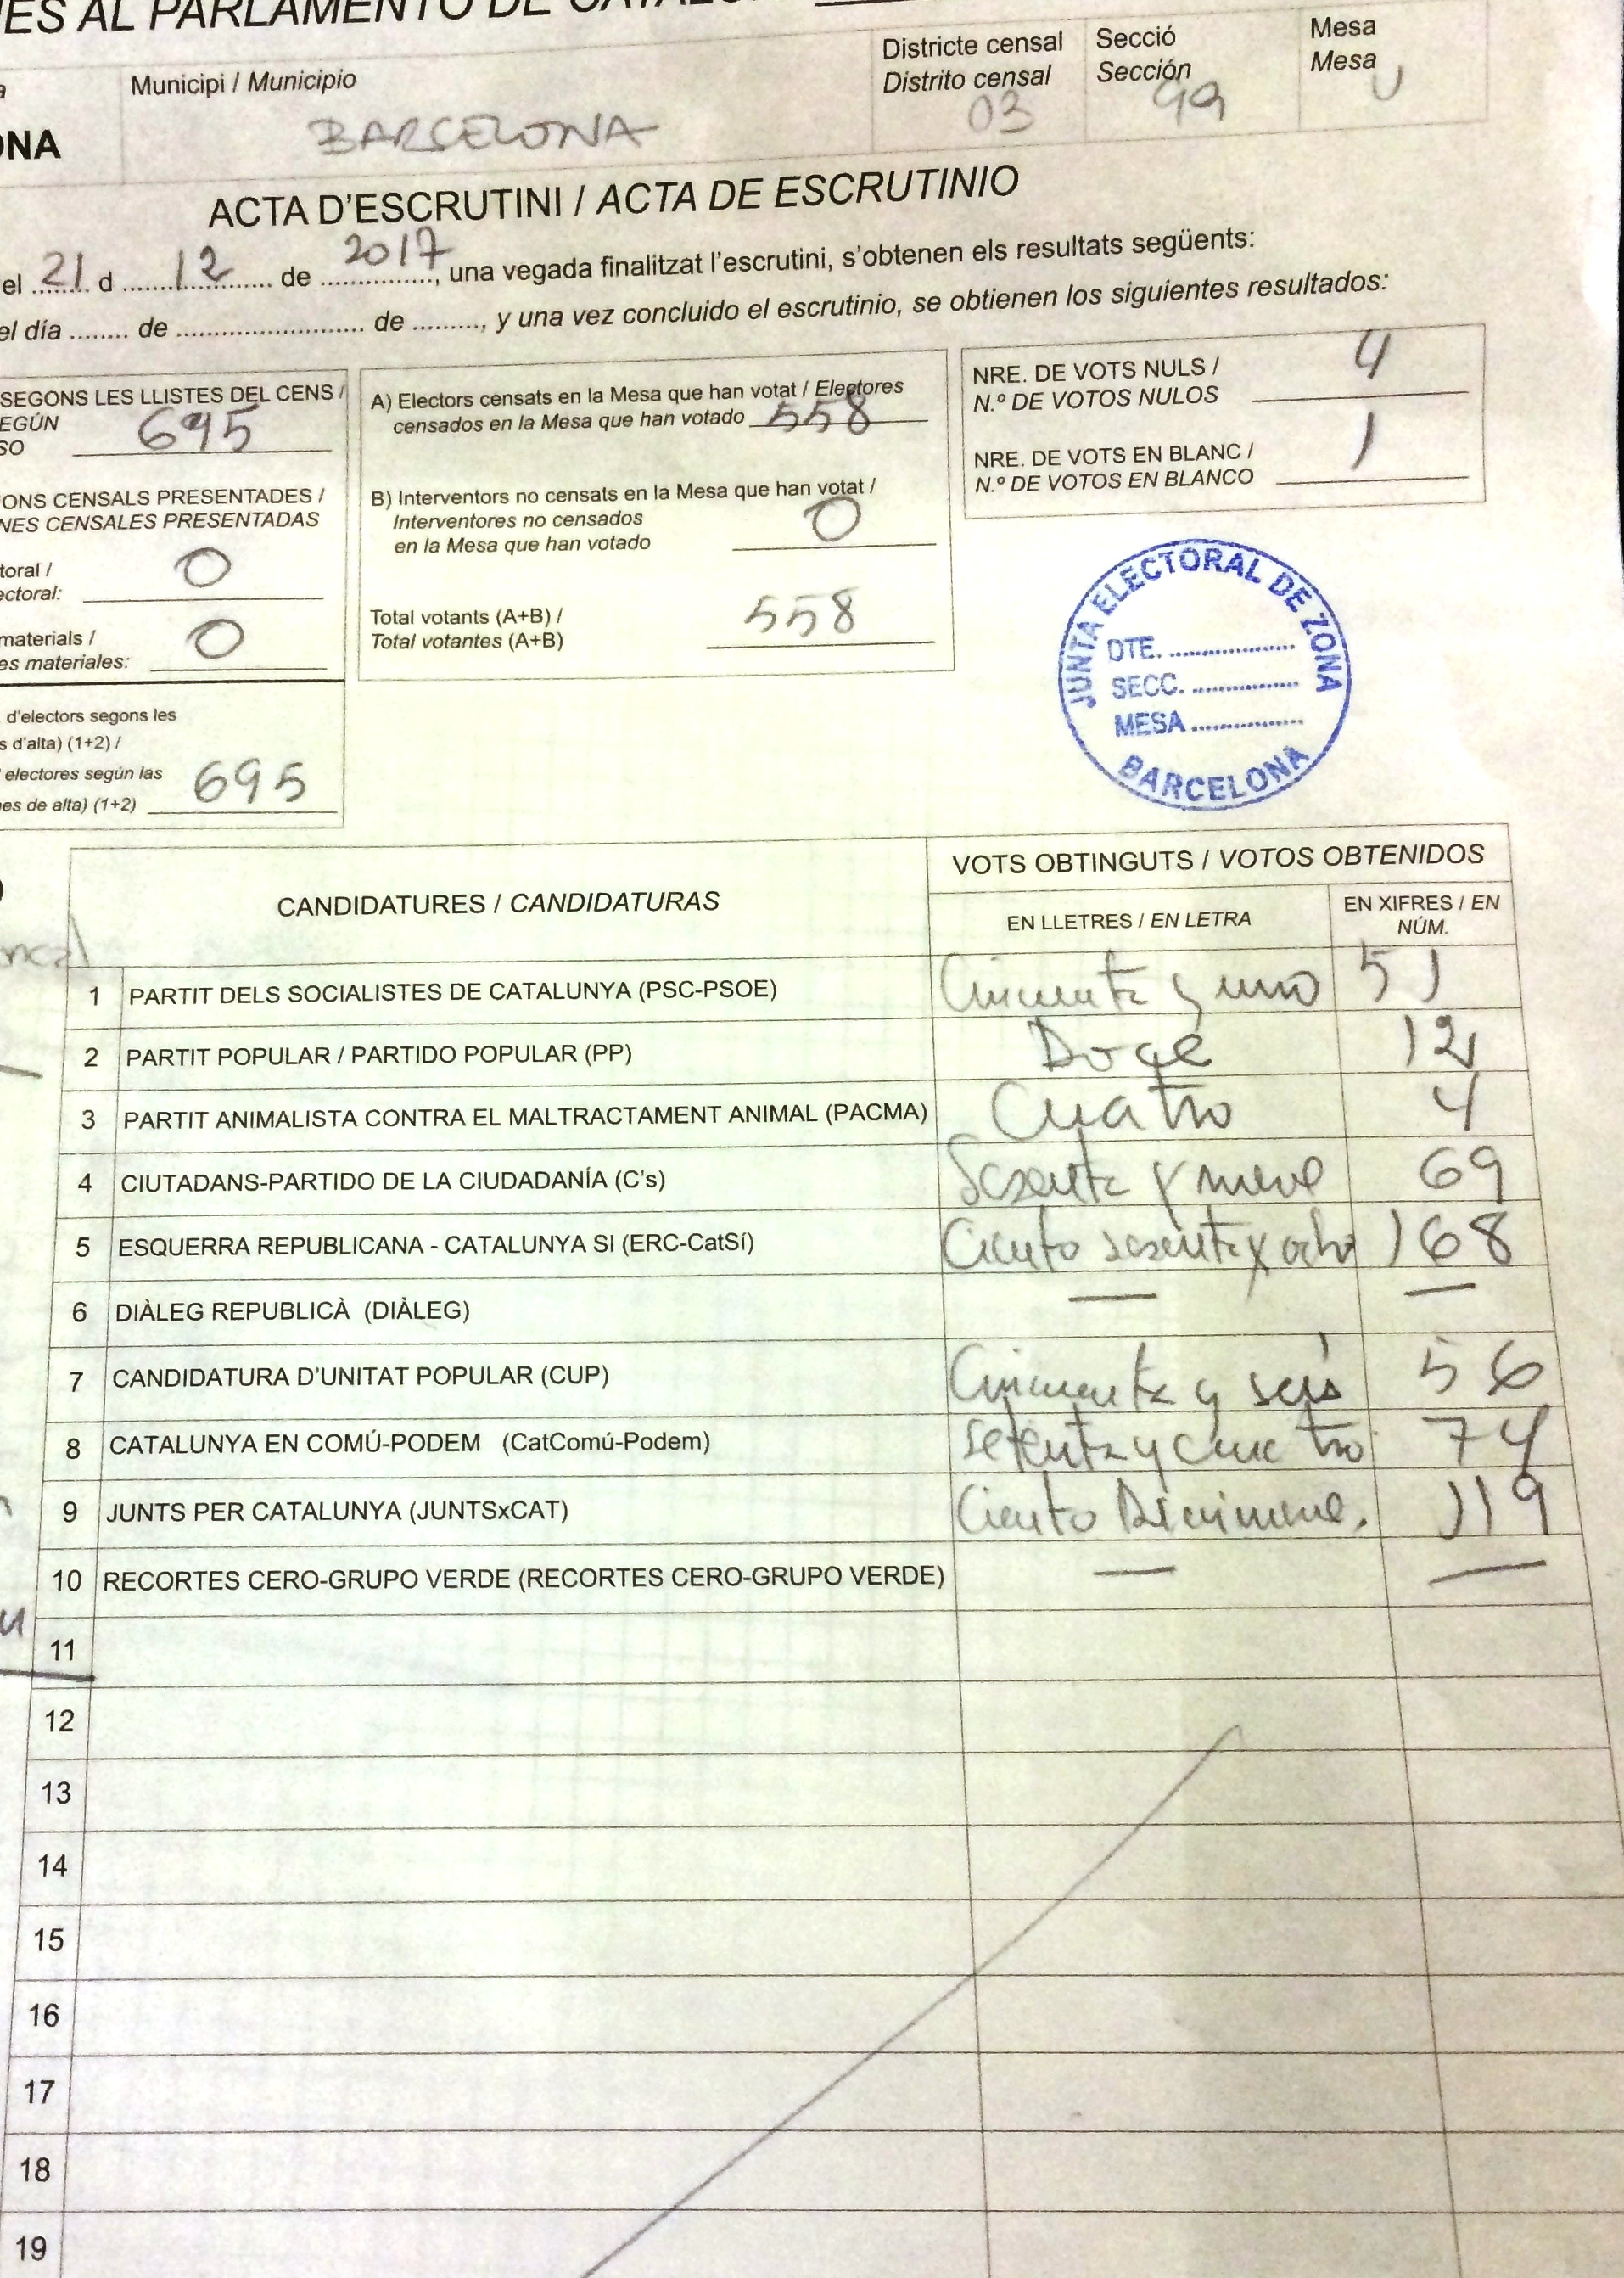 ES AL PARLAMENTO DE
Municipi / Municipio
BARCELONA
Districte censal
Distrito censal
03
Secció
Sección
99
Mesa
Mesa
U
ONA
ACTA D'ESCRUTINI / ACTA DE ESCRUTINIO
el 21 d 12 de 2017, una vegada finalitzat l'escrutini, s'obtenen els resultats següents:
el día ........ de ........................ de ........., y una vez concluido el escrutinio, se obtienen los siguientes resultados:
SEGONS LES LLISTES DEL CENS /
EGÚN
SO 695
ONS CENSALS PRESENTADES /
NES CENSALES PRESENTADAS
toral /
ectoral: 0
materials /
es materiales: 0
d'electors segons les
s d'alta) (1+2) /
electores según las
es de alta) (1+2) 695
A) Electors censats en la Mesa que han votat / Electores
censados en la Mesa que han votado 558
B) Interventors no censats en la Mesa que han votat /
Interventores no censados
en la Mesa que han votado 0
Total votants (A+B) /
Total votantes (A+B) 558
NRE. DE VOTS NULS /
N.º DE VOTOS NULOS 4
NRE. DE VOTS EN BLANC /
N.º DE VOTOS EN BLANCO 1
JUNTA ELECTORAL DE ZONA
DTE. ....................
SECC. .................
MESA .................
BARCELONA
CANDIDATURES / CANDIDATURAS
VOTS OBTINGUTS / VOTOS OBTENIDOS
EN LLETRES / EN LETRA
EN XIFRES / EN
NÚM.
1 PARTIT DELS SOCIALISTES DE CATALUNYA (PSC-PSOE) Cincuenta y uno 51
2 PARTIT POPULAR / PARTIDO POPULAR (PP) Doce 12
3 PARTIT ANIMALISTA CONTRA EL MALTRACTAMENT ANIMAL (PACMA) Cuatro 4
4 CIUTADANS-PARTIDO DE LA CIUDADANÍA (C's) Sesenta y nueve 69
5 ESQUERRA REPUBLICANA - CATALUNYA SI (ERC-CatSí) Ciento sesenta y ocho 168
6 DIÀLEG REPUBLICÀ (DIÀLEG) — —
7 CANDIDATURA D'UNITAT POPULAR (CUP) Cincuenta y seis 56
8 CATALUNYA EN COMÚ-PODEM (CatComú-Podem) Setenta y cuatro 74
9 JUNTS PER CATALUNYA (JUNTSxCAT) Ciento Diecinueve. 119
10 RECORTES CERO-GRUPO VERDE (RECORTES CERO-GRUPO VERDE) — —
11
12
13
14
15
16
17
18
19